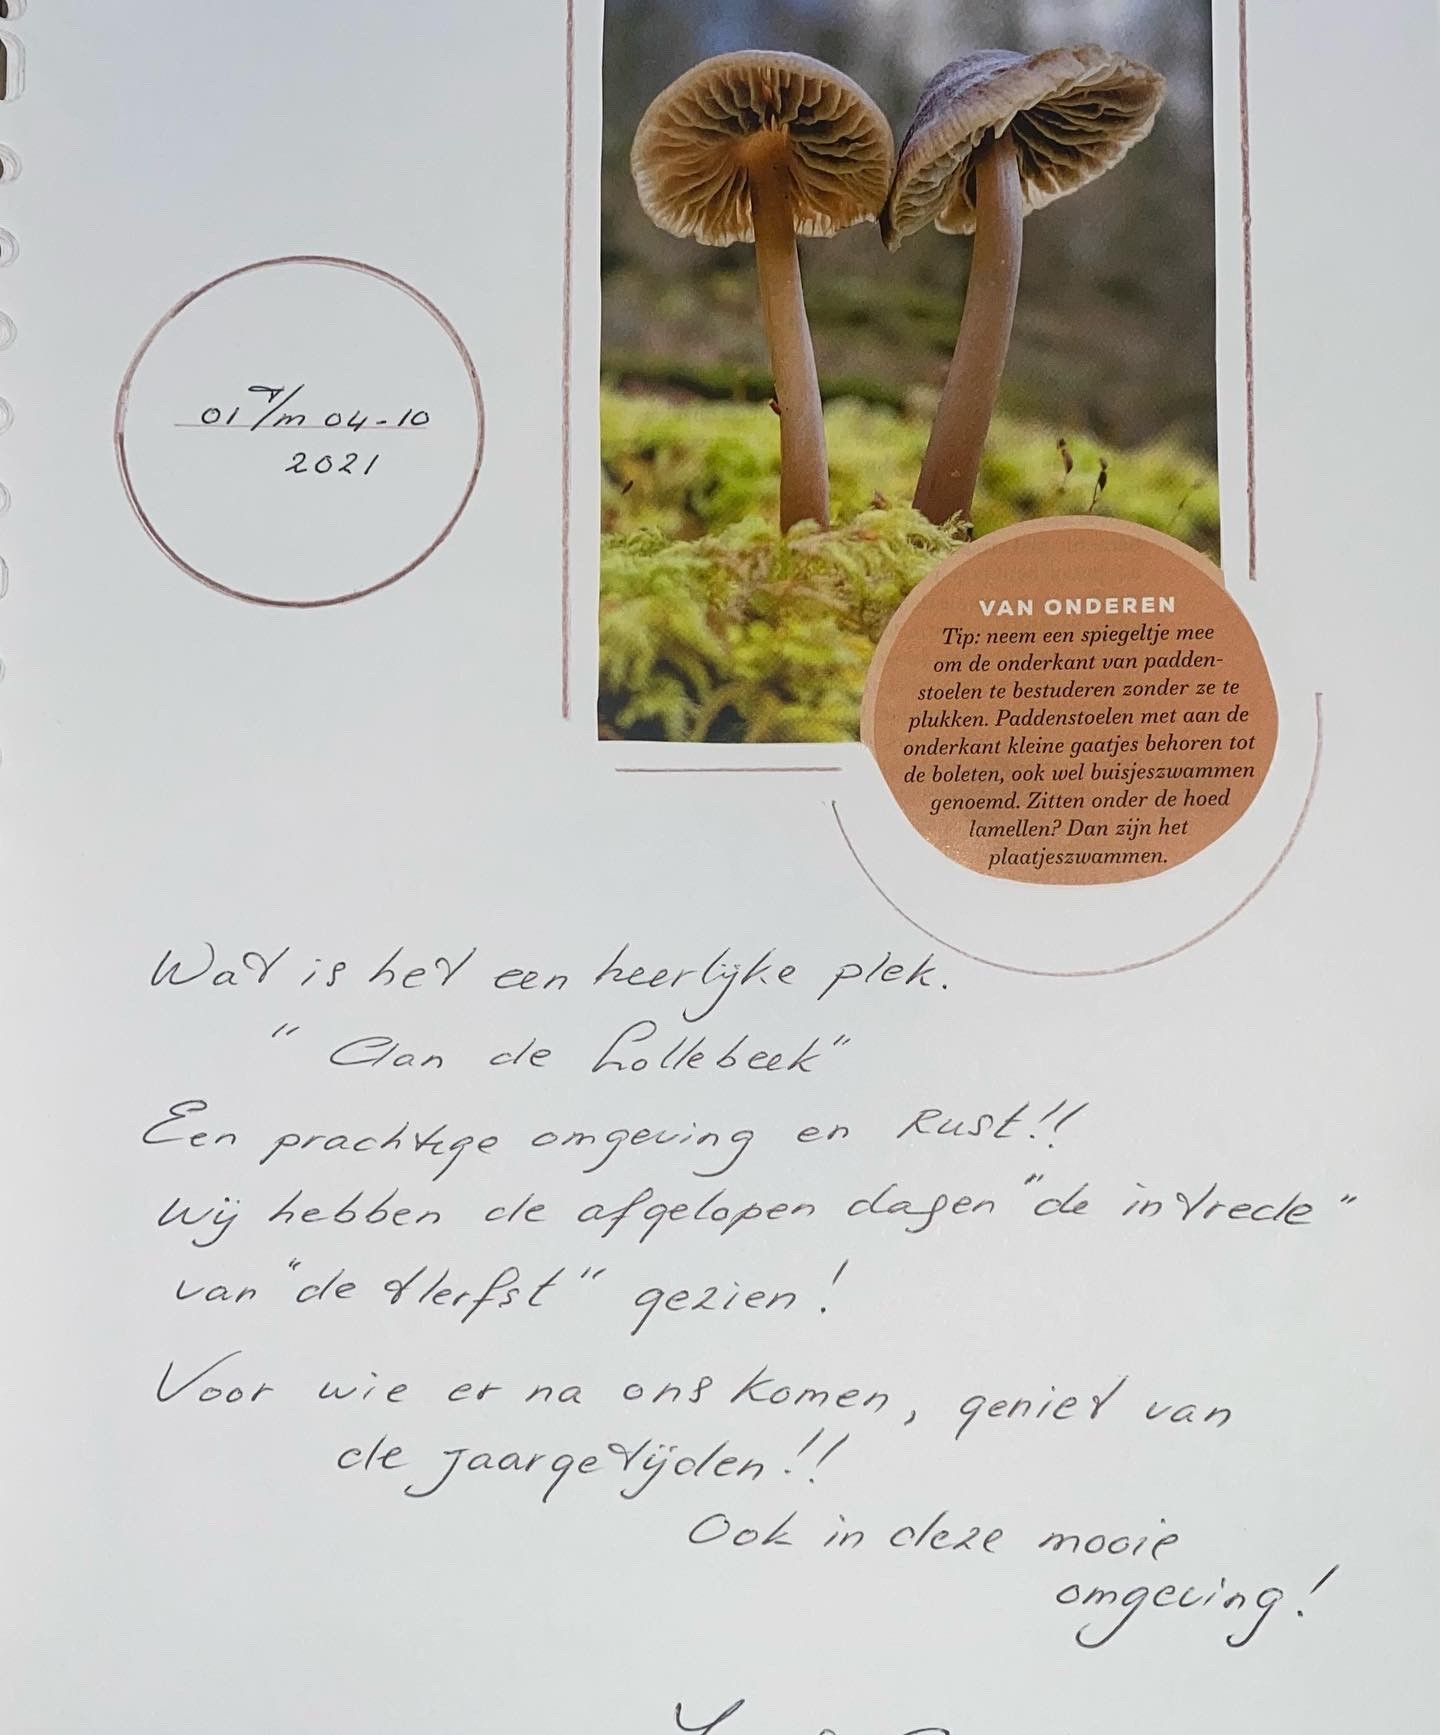 01 t/m 04-10
2021
VAN ONDEREN
Tip: neem een spiegeltje mee
om de onderkant van padden-
stoelen te bestuderen zonder ze te
plukken. Paddenstoelen met aan de
onderkant kleine gaatjes behoren tot
de boleten, ook wel buisjeszwammen
genoemd. Zitten onder de hoed
lamellen? Dan zijn het
plaatjeszwammen.
Wat is het een heerlijke plek.
"Aan de Lollebeek"
Een prachtige omgeving en Rust!!
Wij hebben de afgelopen dagen "de intrede"
van "de Herfst" gezien!
Voor wie er na ons komen, geniet van
de jaargetijden!!
Ook in deze mooie
omgeving!